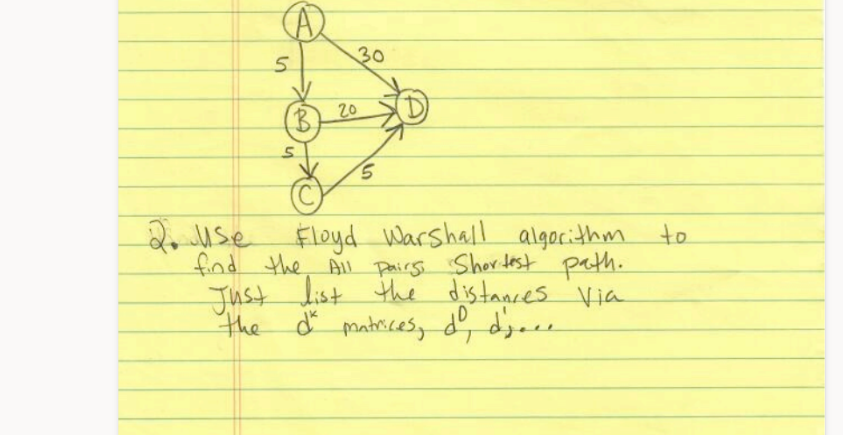 A
5
30
B
20
D
5
C
5
2. Use Floyd Warshall algorithm to
find the All pairs Shortest path.
Just list the distances via
the d^k matrices, d^0, d^1, ...